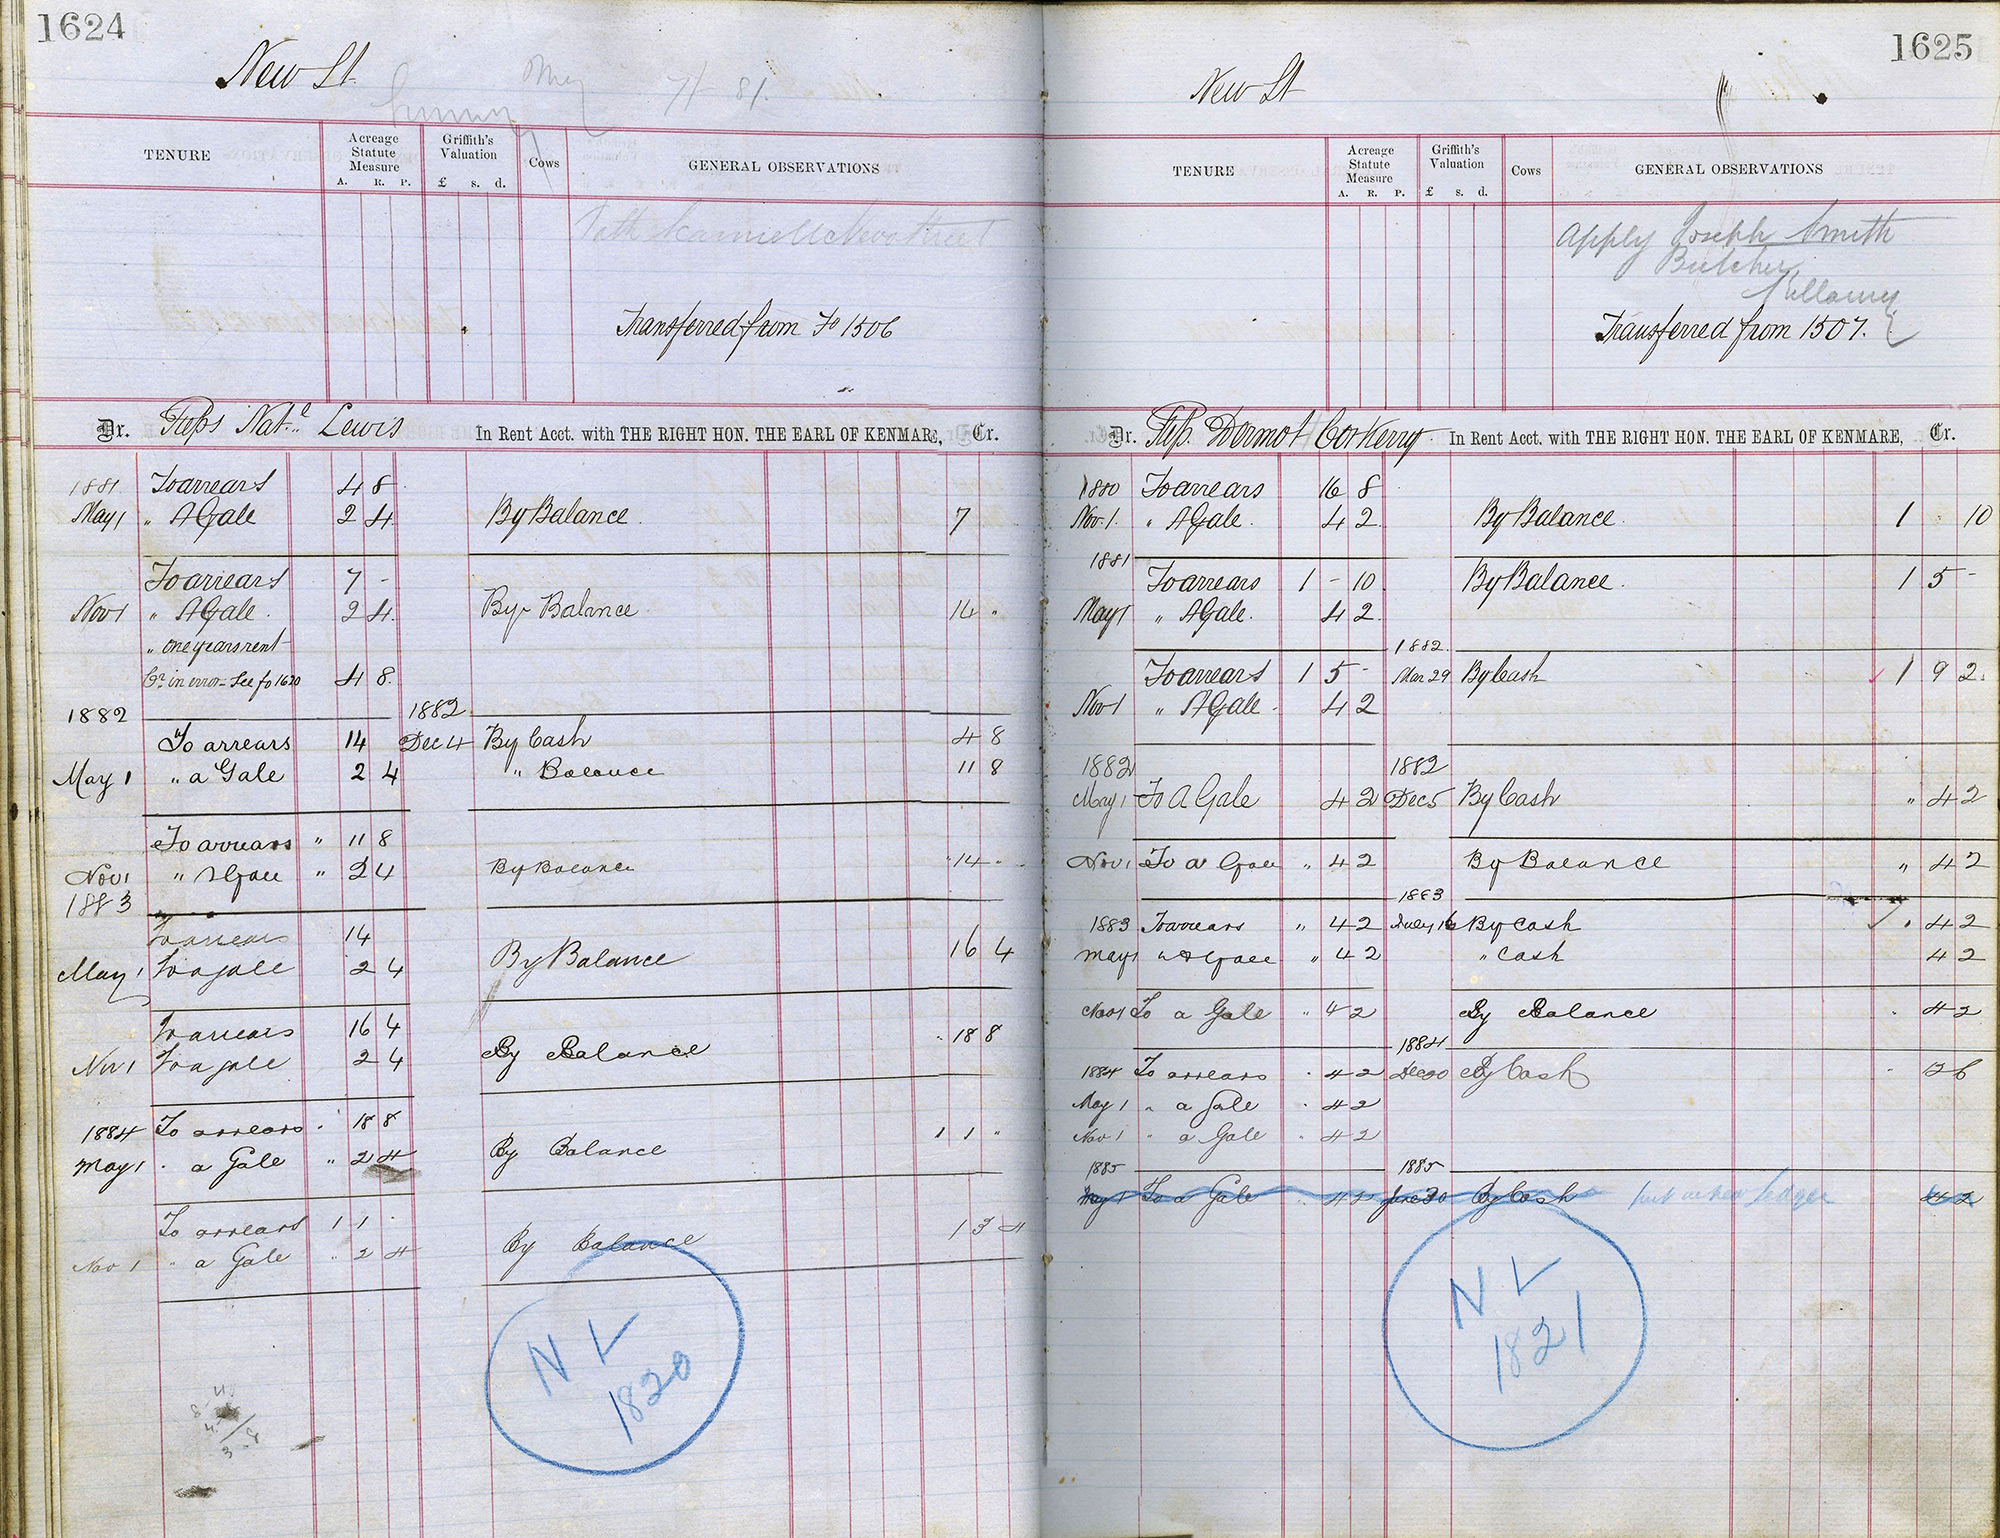 1624
New St.
May 7/- 81.
TENURE
Acreage Statute Measure
A. R. P.
Griffith's Valuation
£ s. d.
Cows
GENERAL OBSERVATIONS
Transferred from Fo 1506
Dr. Reps Nat.l Lewis In Rent Acct. with THE RIGHT HON. THE EARL OF KENMARE, Cr.
1881 To arrears 4 8
May 1 " A Gale 2 4 By Balance 7
To arrears 7 -
Nov 1 " A Gale. 2 4 By Balance 14 "
" one years rent
Cr. in error - See fo 1620 4 8
1882 1882
To arrears 14 Dec 4 By Cash 4 8
May 1 " a Gale 2 4 " Balance 11 8
To arrears " 11 8
Nov 1 " A Gale " 2 4 By Balance " 14 "
1883
To arrears 14
May 1 To a gale 2 4 By Balance 16 4
To arrears 16 4
Nov 1 To a gale 2 4 By Balance 18 8
1884 To arrears 18 8
May 1 " a Gale " 2 4 By Balance 1 1 "
To arrears 1 1
Nov 1 " a Gale " 2 4 By Balance 1 3 4
N L
1820
1625
New St
TENURE
Acreage Statute Measure
A. R. P.
Griffith's Valuation
£ s. d.
Cows
GENERAL OBSERVATIONS
Apply Joseph Smith
Butcher
Killarney
Transferred from 1507.
Dr. Reps. Dermot Corkerry In Rent Acct. with THE RIGHT HON. THE EARL OF KENMARE, Cr.
1880 To arrears 16 8
Nov. 1. " A Gale. 4 2 By Balance. 1 " 10
1881
To arrears 1 - 10 By Balance. 1 5 -
May 1 " A Gale. 4 2
1882.
To arrears 1 5 - Mar 29 By Cash 1 9 2.
Nov 1 " A Gale 4 2
1882 1882
May 1 To A Gale 4 2 Dec 5 By Cash " 4 2
Nov 1 To a Gale " 4 2 By Balance " 4 2
1883
1883 To arrears " 4 2 July 16 By Cash " 4 2
May 1 " A Gale " 4 2 " Cash 4 2
Nov 1 To a Gale " 4 2 By Balance 4 2
1884
1884 To arrears 4 2 Dec 20 By Cash 12 6
May 1 " a Gale 4 2
Nov 1 " a Gale 4 2
1885 1885
May 1 To a Gale 4 2 June 30 By Cash put in new Ledger 4 2
N L
1821